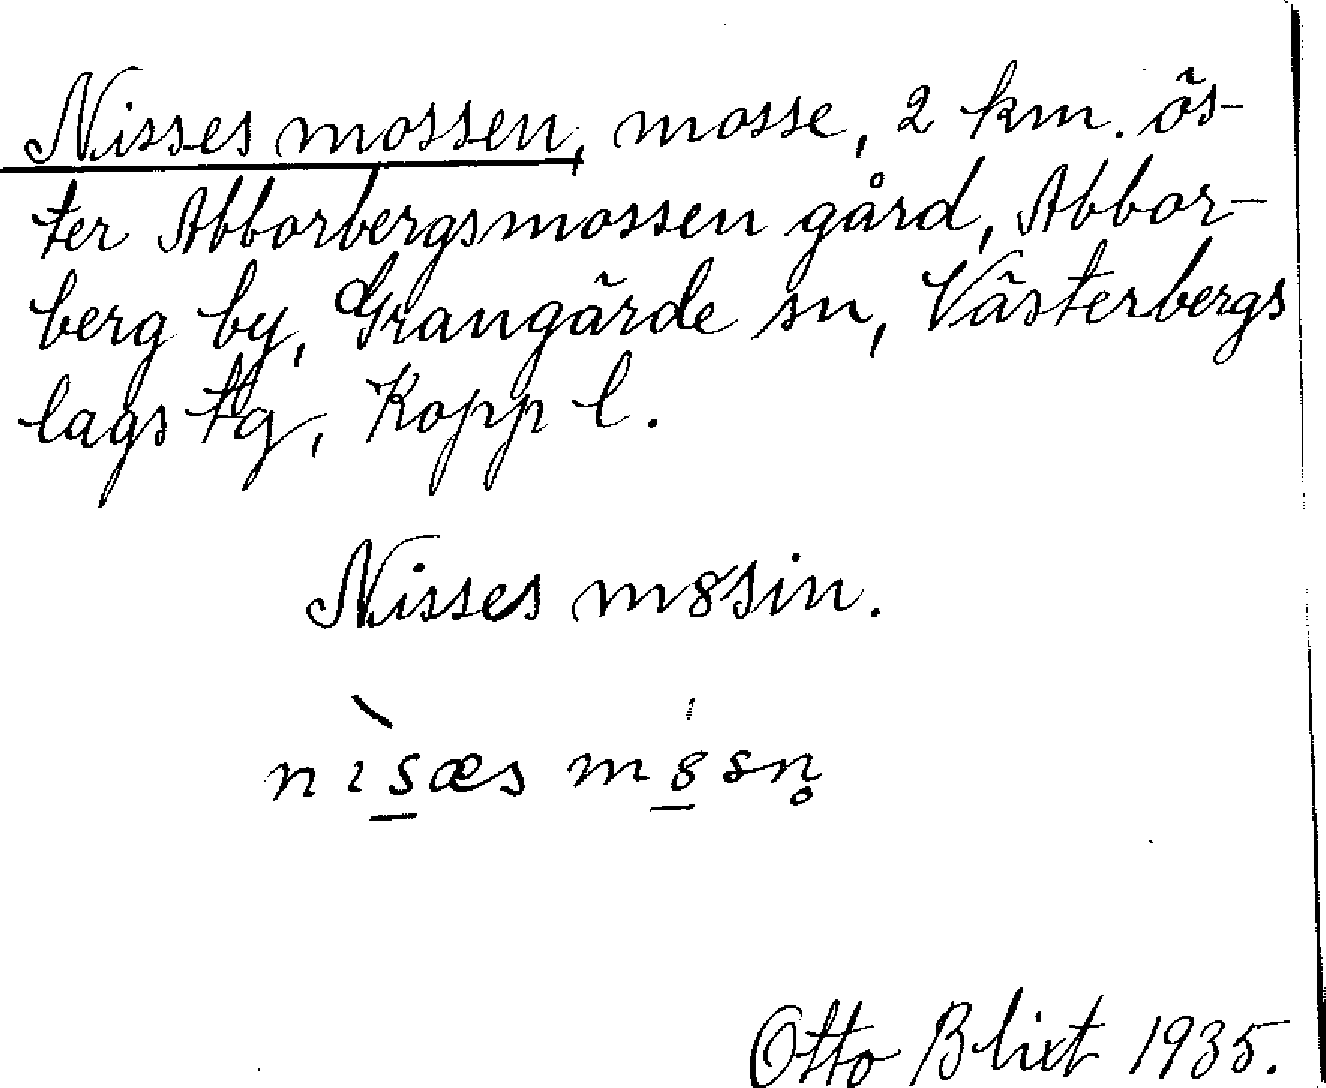 Nisses mossen, mosse, 2 km. ös-
ter Abborbergsmossen gård, Abbor-
berg by, Grangärde sn, Västerbergs
lags tg, Kopp l.
Nisses m8sin.
nìs̲æs m8̲́sn̥
Otto Blixt 1935.